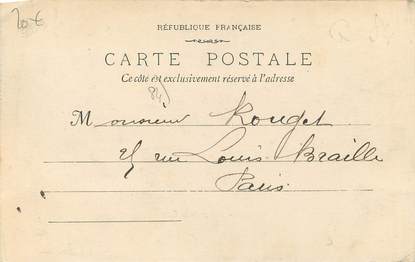 20€
RÉPUBLIQUE FRANÇAISE
CARTE POSTALE
Ce côté est exclusivement réservé à l'adresse
84)
Monsieur Rouget
rue Louis Braille
Paris